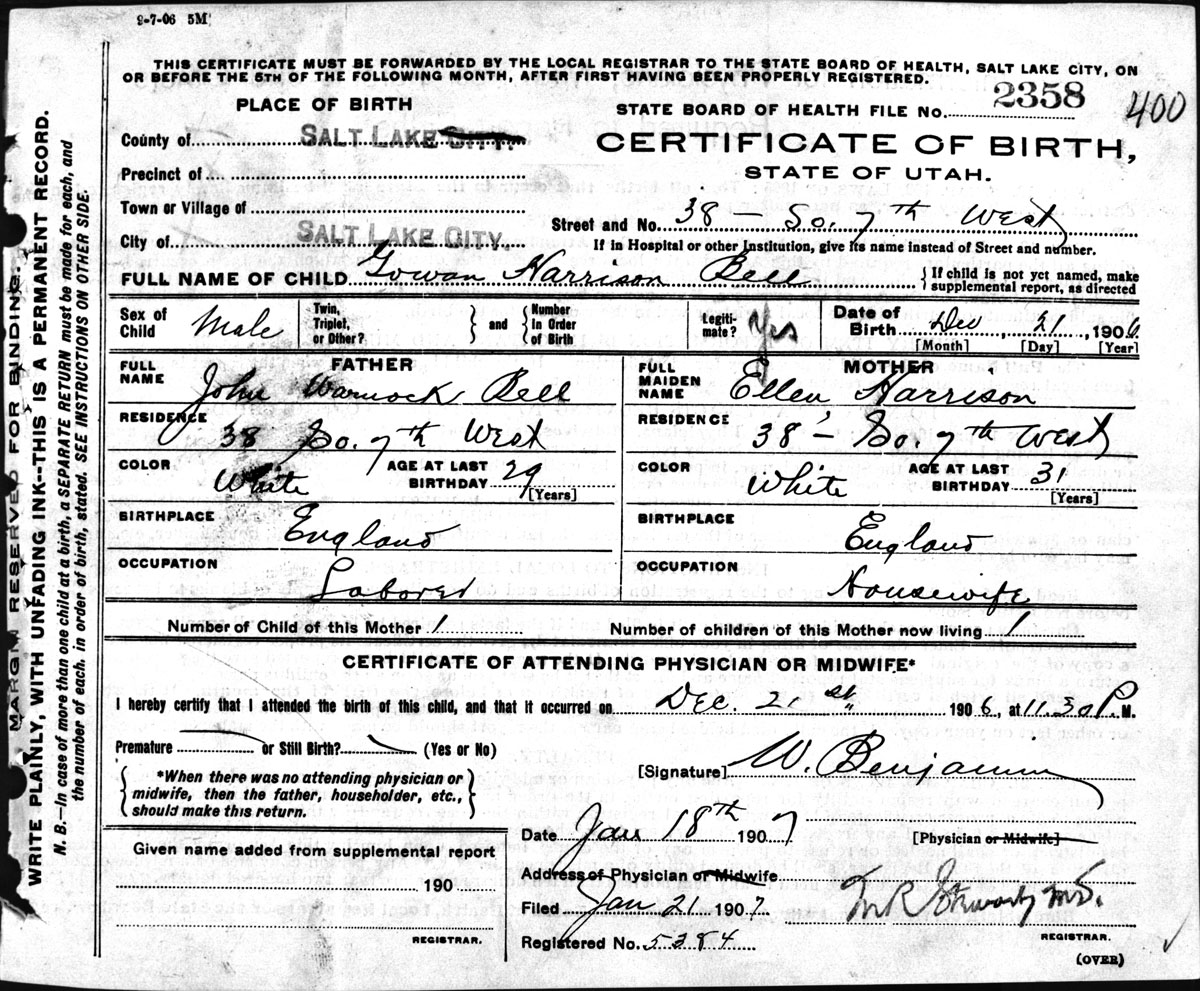 9-7-06 5M
THIS CERTIFICATE MUST BE FORWARDED BY THE LOCAL REGISTRAR TO THE STATE BOARD OF HEALTH, SALT LAKE CITY, ON
OR BEFORE THE 5TH OF THE FOLLOWING MONTH, AFTER FIRST HAVING BEEN PROPERLY REGISTERED.
PLACE OF BIRTH
STATE BOARD OF HEALTH FILE No. 2358
400
County of SALT LAKE CITY.
CERTIFICATE OF BIRTH,
STATE OF UTAH.
Precinct of
Town or Village of
Street and No. 38 - So. 7th West
City of SALT LAKE CITY.
If in Hospital or other Institution, give its name instead of Street and number.
FULL NAME OF CHILD Gowan Harrison Bell
{ If child is not yet named, make
supplemental report, as directed
Sex of Child Male
Twin, Triplet, or Other? } and { Number in Order of Birth
Legiti-mate? Yes
Date of Birth Dec 21, 1906
[Month] [Day] [Year]
FATHER
FULL NAME John Warnock Bell
RESIDENCE 38 So. 7th West
COLOR White AGE AT LAST BIRTHDAY 29 [Years]
BIRTHPLACE England
OCCUPATION Laborer
MOTHER
FULL MAIDEN NAME Ellen Harrison
RESIDENCE 38 - So. 7th West
COLOR White AGE AT LAST BIRTHDAY 31 [Years]
BIRTHPLACE England
OCCUPATION Housewife
Number of Child of this Mother 1 Number of children of this Mother now living 1
CERTIFICATE OF ATTENDING PHYSICIAN OR MIDWIFE*
I hereby certify that I attended the birth of this child, and that it occurred on Dec. 21st, 1906, at 11.30 P. M.
Premature or Still Birth? (Yes or No)
{ *When there was no attending physician or
midwife, then the father, householder, etc.,
should make this return. }
[Signature] W. Benjamin
Date Jan 18th 1907
[Physician or Midwife]
Given name added from supplemental report
190
REGISTRAR.
Address of Physician or Midwife
Filed Jan 21 1907
M.D.
REGISTRAR.
Registered No. 5384
(OVER)
MARGIN RESERVED FOR BINDING.
WRITE PLAINLY, WITH UNFADING INK--THIS IS A PERMANENT RECORD.
N. B.—In case of more than one child at a birth, a SEPARATE RETURN must be made for each, and
the number of each, in order of birth, stated. SEE INSTRUCTIONS ON OTHER SIDE.